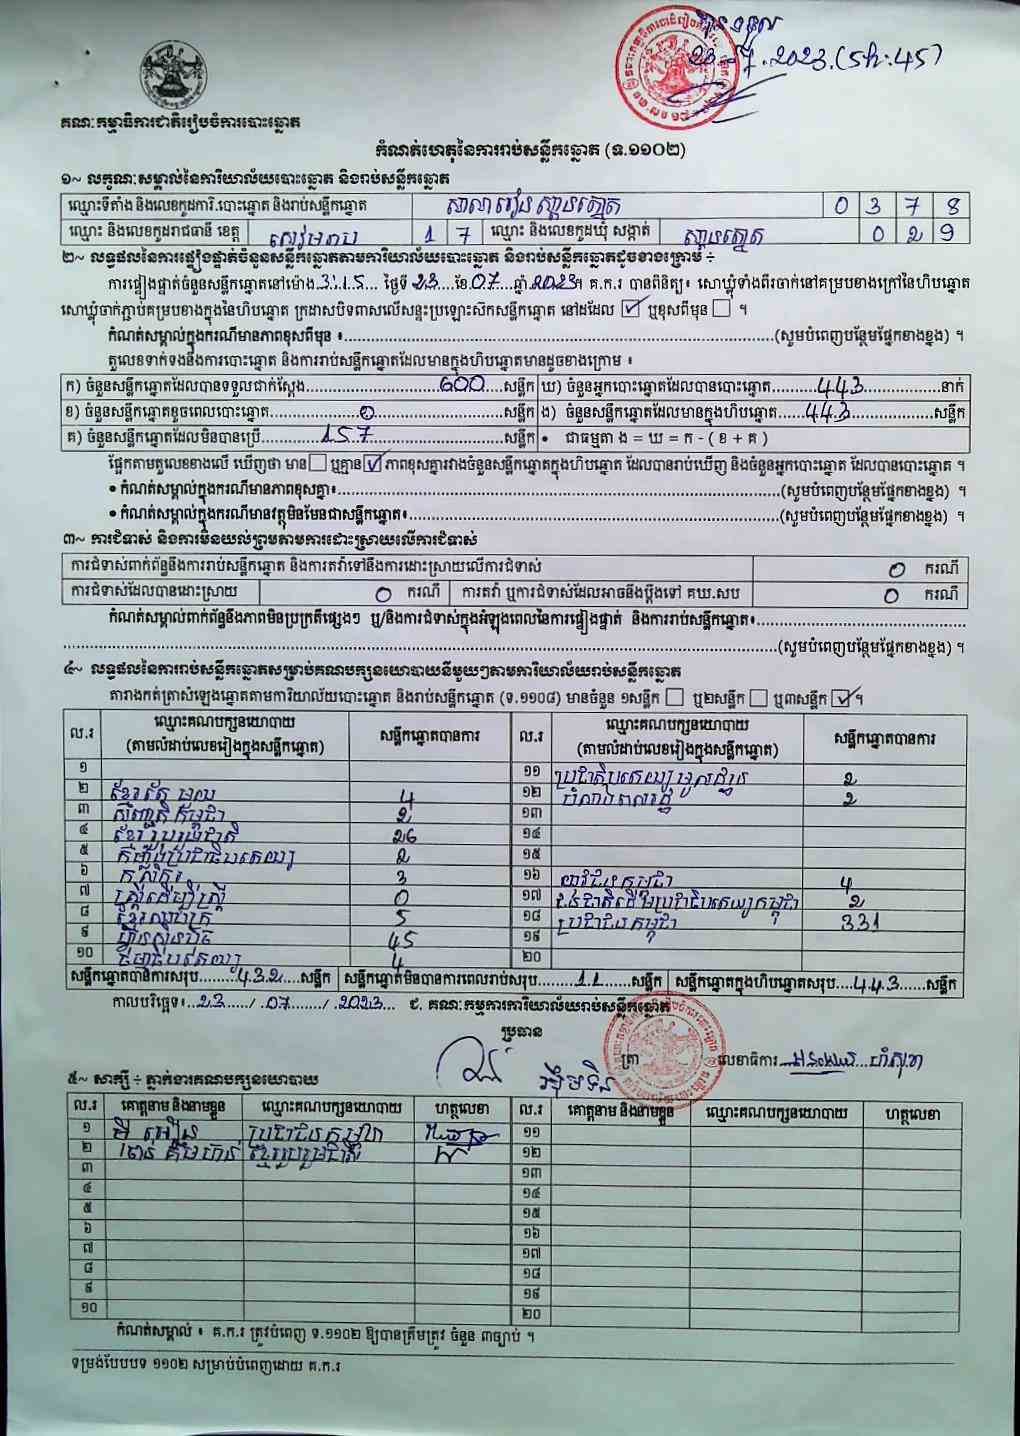 បានចូល
23.7.2023.(5h:45)
គណៈកម្មាធិការជាតិរៀបចំការបោះឆ្នោត
កំណត់ហេតុនៃការរាប់សន្លឹកឆ្នោត (ទ.១១០២)
១~ លក្ខណៈសម្គាល់នៃការិយាល័យបោះឆ្នោត និងរាប់សន្លឹកឆ្នោត
ឈ្មោះទីតាំង និងលេខកូដការិ.បោះឆ្នោត និងរាប់សន្លឹកឆ្នោត សាលារៀន ស្ពានត្នោត 0 3 7 8
ឈ្មោះ និងលេខកូដរាជធានី ខេត្ត សៀមរាប 1 7 ឈ្មោះ និងលេខកូដឃុំ សង្កាត់ ស្ពានត្នោត 0 2 9
២~ លទ្ធផលនៃការផ្ទៀងផ្ទាត់ចំនួនសន្លឹកឆ្នោតតាមការិយាល័យបោះឆ្នោត និងរាប់សន្លឹកឆ្នោតដូចខាងក្រោម ÷
ការផ្ទៀងផ្ទាត់ចំនួនសន្លឹកឆ្នោតនៅម៉ោង.3:15... ថ្ងៃទី 23..ខែ.07...ឆ្នាំ.2023។ គ.ក.រ បានពិនិត្យ៖ សោឃ្លុំទាំងពីរចាក់នៅគម្របខាងក្រៅនៃហិបឆ្នោត
សោឃ្លុំចាក់ភ្ជាប់គម្របខាងក្នុងនៃហិបឆ្នោត ក្រដាសបិទពាសលើសន្ទះប្រឡោះស៊កសន្លឹកឆ្នោត នៅដដែល ☑ ឬខុសពីមុន ☐ ។
កំណត់សម្គាល់ក្នុងករណីមានភាពខុសពីមុន ៖...(សូមបំពេញបន្ថែមផ្នែកខាងខ្នង) ។
តួលេខទាក់ទងនឹងការបោះឆ្នោត និងការរាប់សន្លឹកឆ្នោតដែលមានក្នុងហិបឆ្នោតមានដូចខាងក្រោម ៖
ក) ចំនួនសន្លឹកឆ្នោតដែលបានទទួលជាក់ស្តែង...600...សន្លឹក ឃ) ចំនួនអ្នកបោះឆ្នោតដែលបានបោះឆ្នោត...443...នាក់
ខ) ចំនួនសន្លឹកឆ្នោតខូចពេលបោះឆ្នោត...0...សន្លឹក ង) ចំនួនសន្លឹកឆ្នោតដែលមានក្នុងហិបឆ្នោត...443...សន្លឹក
គ) ចំនួនសន្លឹកឆ្នោតដែលមិនបានប្រើ...157...សន្លឹក • ជាធម្មតា ង = ឃ = ក - ( ខ + គ )
ផ្អែកតាមតួលេខខាងលើ ឃើញថា មាន ☐ ឬគ្មាន ☑ ភាពខុសគ្នារវាងចំនួនសន្លឹកឆ្នោតក្នុងហិបឆ្នោត ដែលបានរាប់ឃើញ និងចំនួនអ្នកបោះឆ្នោត ដែលបានបោះឆ្នោត ។
• កំណត់សម្គាល់ក្នុងករណីមានភាពខុសគ្នា៖...(សូមបំពេញបន្ថែមផ្នែកខាងខ្នង) ។
• កំណត់សម្គាល់ក្នុងករណីមានវត្ថុមិនមែនជាសន្លឹកឆ្នោត៖...(សូមបំពេញបន្ថែមផ្នែកខាងខ្នង) ។
៣~ ការជំទាស់ និងការមិនយល់ព្រមតាមការដោះស្រាយលើការជំទាស់
ការជំទាស់ពាក់ព័ន្ធនឹងការរាប់សន្លឹកឆ្នោត និងការតវ៉ាទៅនឹងការដោះស្រាយលើការជំទាស់ 0 ករណី
ការជំទាស់ដែលបានដោះស្រាយ 0 ករណី ការតវ៉ា ឬការជំទាស់ដែលអាចនឹងប្តឹងទៅ គឃ.សប 0 ករណី
កំណត់សម្គាល់ពាក់ព័ន្ធនឹងភាពមិនប្រក្រតីផ្សេងៗ ឬ/និងការជំទាស់ក្នុងអំឡុងពេលនៃការផ្ទៀងផ្ទាត់ និងការរាប់សន្លឹកឆ្នោត៖...
...(សូមបំពេញបន្ថែមផ្នែកខាងខ្នង) ។
៤~ លទ្ធផលនៃការរាប់សន្លឹកឆ្នោតសម្រាប់គណបក្សនយោបាយនីមួយៗតាមការិយាល័យរាប់សន្លឹកឆ្នោត
តារាងកត់ត្រាសំឡេងឆ្នោតតាមការិយាល័យបោះឆ្នោត និងរាប់សន្លឹកឆ្នោត (ទ.១១០៨) មានចំនួន ១សន្លឹក ☐ ឬ២សន្លឹក ☐ ឬ៣សន្លឹក ☑ ។
ល.រ ឈ្មោះគណបក្សនយោបាយ (តាមលំដាប់លេខរៀងក្នុងសន្លឹកឆ្នោត) សន្លឹកឆ្នោតបានការ ល.រ ឈ្មោះគណបក្សនយោបាយ (តាមលំដាប់លេខរៀងក្នុងសន្លឹកឆ្នោត) សន្លឹកឆ្នោតបានការ
១ ១១ ប្រជាធិបតេយ្យមូលដ្ឋាន 2
២ ខ្មែរតែមួយ 4 ១២ 2
៣ សញ្ជាតិកម្ពុជា 2 ១៣
៤ ខ្មែររួបរួមជាតិ 26 ១៤
៥ កម្លាំងប្រជាធិបតេយ្យ 2 ១៥
៦ កសិករ 3 ១៦ យុវជនកម្ពុជា 4
៧ ស្ត្រីដើម្បីស្ត្រី 0 ១៧ ជនជាតិដើមប្រជាធិបតេយ្យកម្ពុជា 2
៨ ខ្មែរឈប់ក្រ 5 ១៨ ប្រជាជនកម្ពុជា 331
៩ ហ្វ៊ុនស៊ិនប៉ិច 45 ១៩
១០ ធម្មាធិបតេយ្យ 4 ២០
សន្លឹកឆ្នោតបានការសរុប...432...សន្លឹក សន្លឹកឆ្នោតមិនបានការពេលរាប់សរុប...11...សន្លឹក សន្លឹកឆ្នោតក្នុងហិបឆ្នោតសរុប...443...សន្លឹក
កាលបរិច្ឆេទ៖..23...../.07....../.2023... ជ. គណៈកម្មការការិយាល័យរាប់សន្លឹកឆ្នោត
ប្រធាន
ត្រា លេខាធិការ
៥~ សាក្សី ÷ ភ្នាក់ងារគណបក្សនយោបាយ
ល.រ គោត្តនាម និងនាមខ្លួន ឈ្មោះគណបក្សនយោបាយ ហត្ថលេខា ល.រ គោត្តនាម និងនាមខ្លួន ឈ្មោះគណបក្សនយោបាយ ហត្ថលេខា
១ ប្រជាជនកម្ពុជា ១១
២ ខ្មែររួបរួមជាតិ ១២
៣ ១៣
៤ ១៤
៥ ១៥
៦ ១៦
៧ ១៧
៨ ១៨
៩ ១៩
១០ ២០
កំណត់សម្គាល់ ៖ គ.ក.រ ត្រូវបំពេញ ទ.១១០២ ឱ្យបានត្រឹមត្រូវ ចំនួន ៣ច្បាប់ ។
ទម្រង់បែបបទ ១១០២ សម្រាប់បំពេញដោយ គ.ក.រ